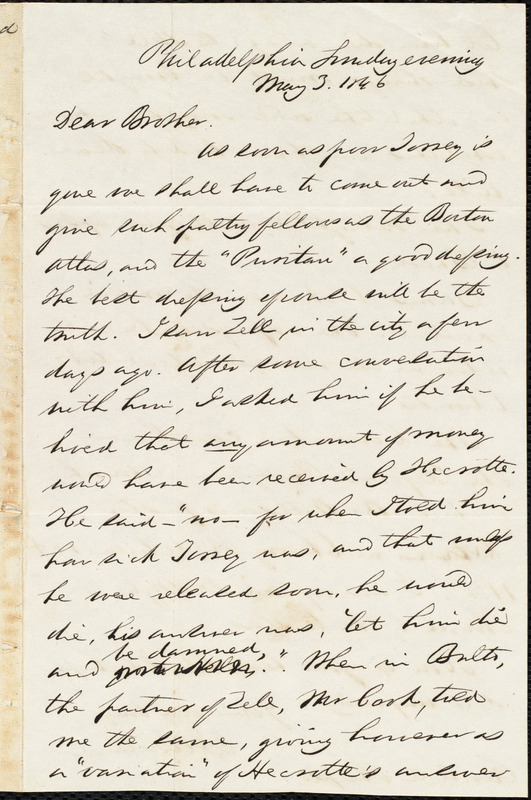 d
Philadelphia Sunday evening
May 3. 1846
Dear Brother.
As soon as poor Torrey is
gone we shall have to come out and
give such paltry fellows as the Boston
Atlas, and the "Puritan" a good dressing.
The best dressing of course will be the
truth. I saw Zell in the city a few
days ago. After some conversation
with him, I asked him if he be-
lieved that any amount of money
would have been received by Heckrotte.
He said - "no - for when I told him
how sick Torrey was, and that unless
he were released soon, he would
die, his answer was, "let him die
be damned,
and ." When in Balto,
the partner of Zell, Mr Cook, told
me the same, giving however as
a "variation" of Heckrotte's answer